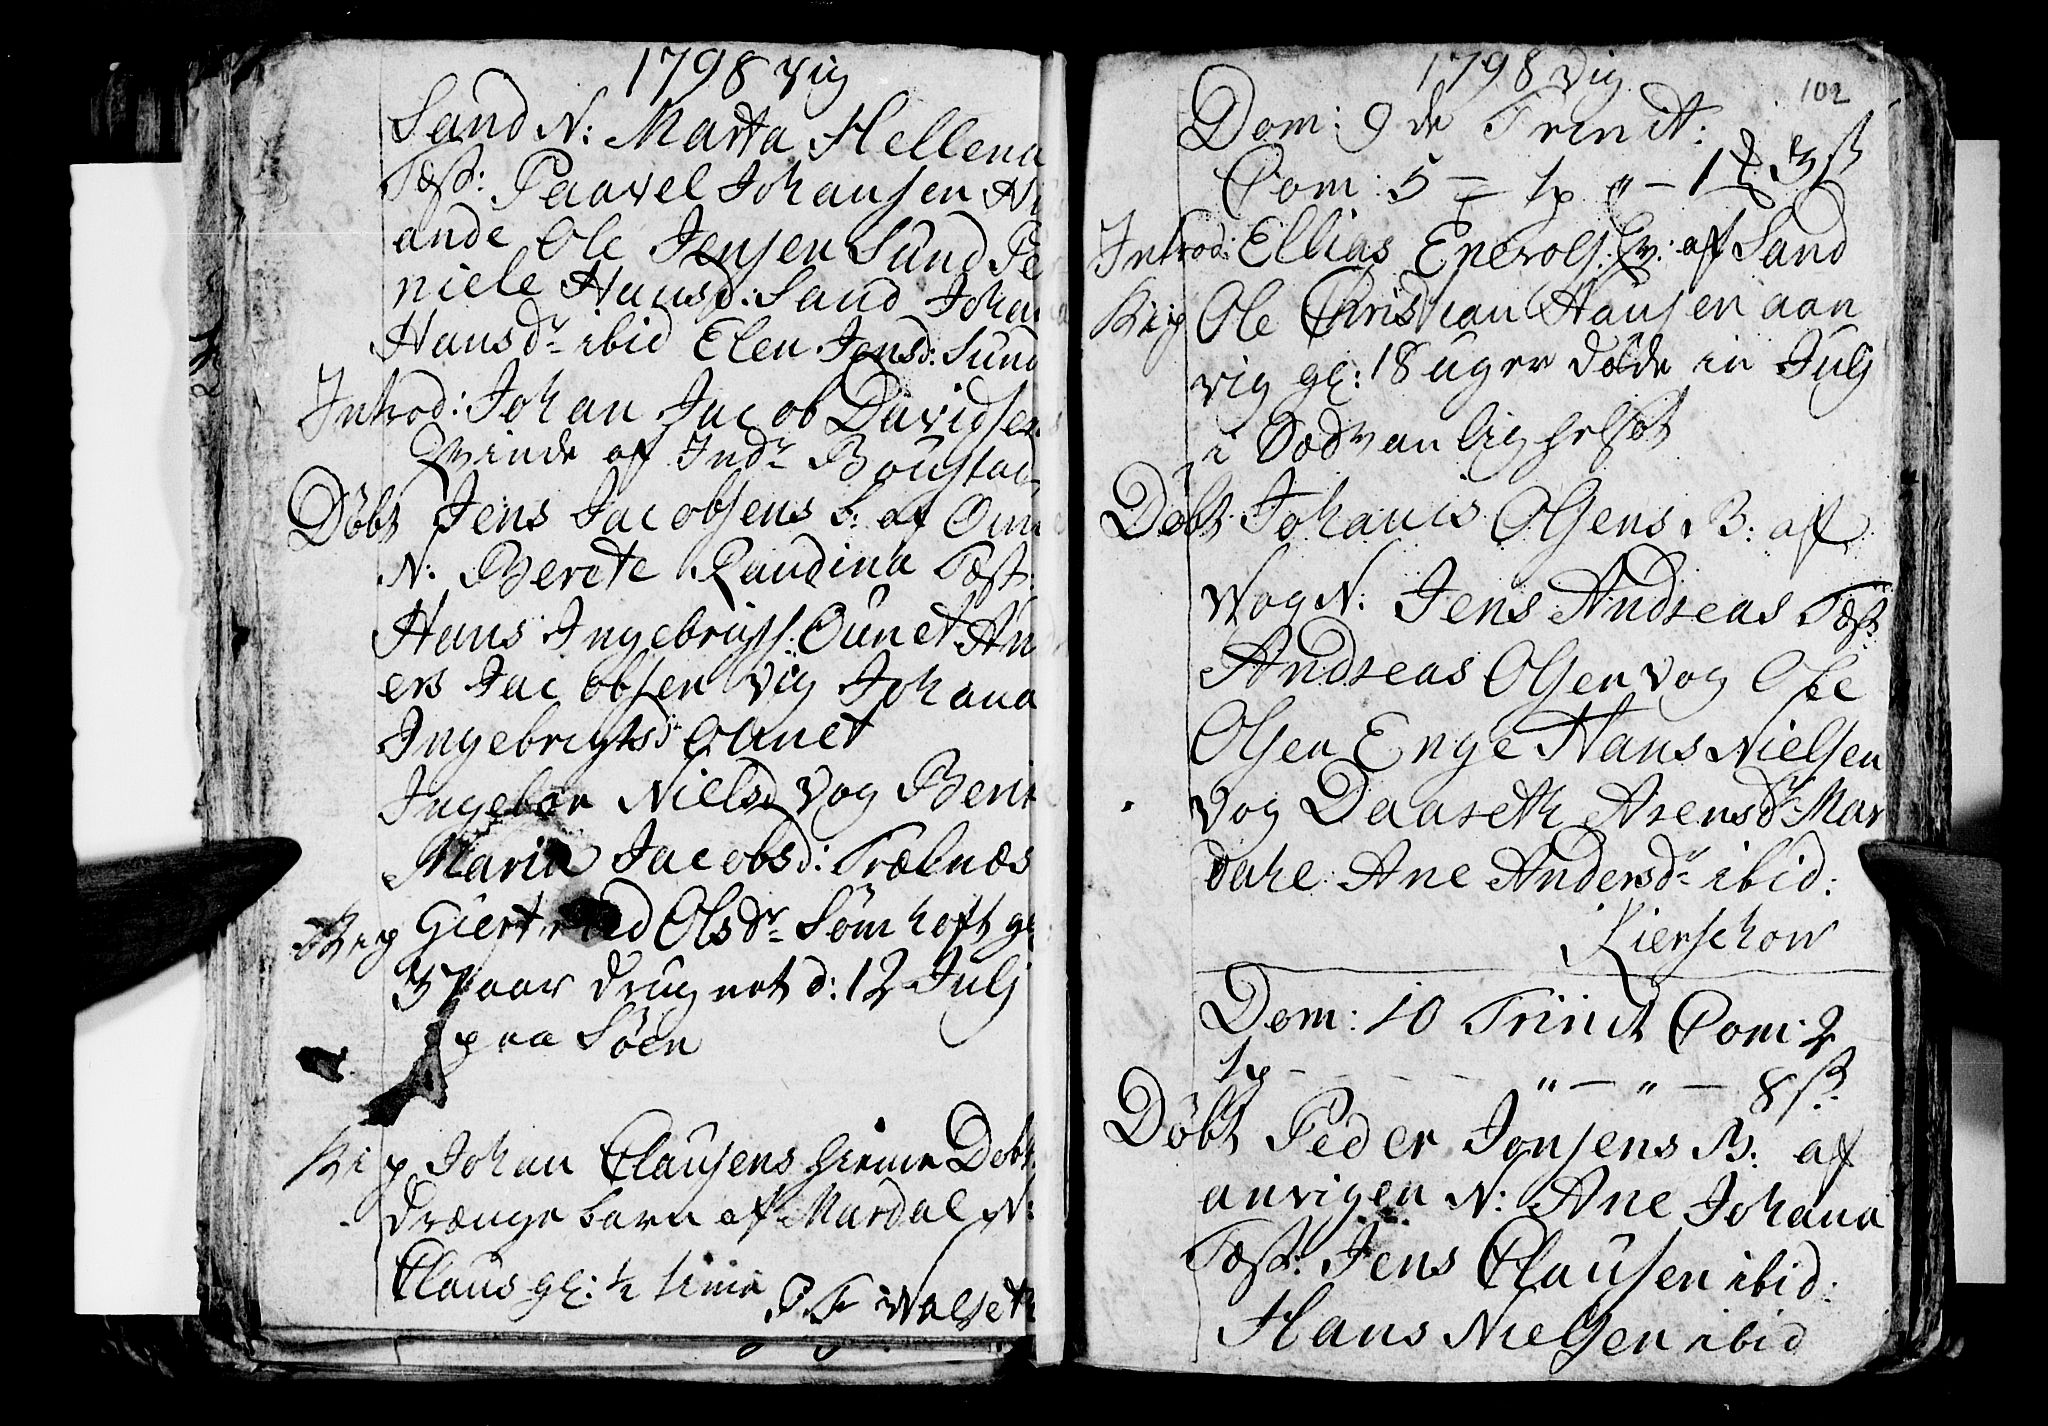 1798 vig
Sand N: Marta Hellena
Test: Paavel Johansen
ande Ole Jensen Sund
niele Hansd: Sand Johan
Hansdr ibid Elen Jensd: Sund
Introd: Johan Jacob Davidsens
Qvinde af Indr Boustad
Døbt Jens Jacobsens b: af
N: Berete Randina Test:
Hans Ingebrigs: Ounet An
ers Jacobsen Vig Johana
Ingebrigtsdr Ounet
Ingebor Nielsd Vog Beni
Maria Jacobsd: Trælnæs
Kip Giertrued Olsdr Sømhoft gl
37 aar drugnet d: 12 Julj
paa Søen
Kip Johan Clausens hieme Døbt
drænge barn af Mardal N:
Claus gl: ½ time
Walseth
1798 Vig
102
Dom: 9 de Trindt:
Com: 5
Introd: Ellias Enevols: Qv: af Sand
Kip Ole Christian Hansen aan
vig gl: 18 uger døde in Julj
i Sædvanlig helset
Døbt Johanis Olsens B: af
Vog N: Jens Andreas Test
Andreas Olsen Vog Ole
Olsen Enge Hans Nielsen
Vog Daareth Arensdr Mar
dahl Ane Andersdr ibid:
Kierschow
Dom: 10 Trindt Com: 2
1 p - - - " - " - 8 ß
Døbt Peder Jonsens B: af
anvigen N: Ane Johana
Test: Jens Clausen ibid:
Hans Nielsen ibid